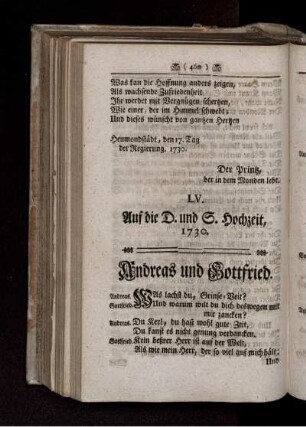 ( 460 )
Was kan die Hoffnung anders zeigen,
Als wachsende Zufriedenheit.
Ihr werdet mit Vergnügen schertzen,
Wie einer, der im Himmel schwebt;
Und dieses wünscht von gantzen Hertzen
Heumondstädt, den 17. Tag
der Regierung. 1730.
Der Printz,
der in dem Monden lebt.
LV.
Auf die D. und S. Hochzeit,
1730.
Andreas und Gottfried.
Andreas. Was lachst du, Grinse-Veit?
Gottfried. Und warum wilt du dich deswegen mit
mir zancken?
Andreas. Du Kerl, du hast wohl gute Zeit,
Du kanst es nicht genung verdancken.
Gottfried. Kein beßrer Herr ist auf der Welt,
Als wie mein Herr, der so viel auf mich hält;
Und